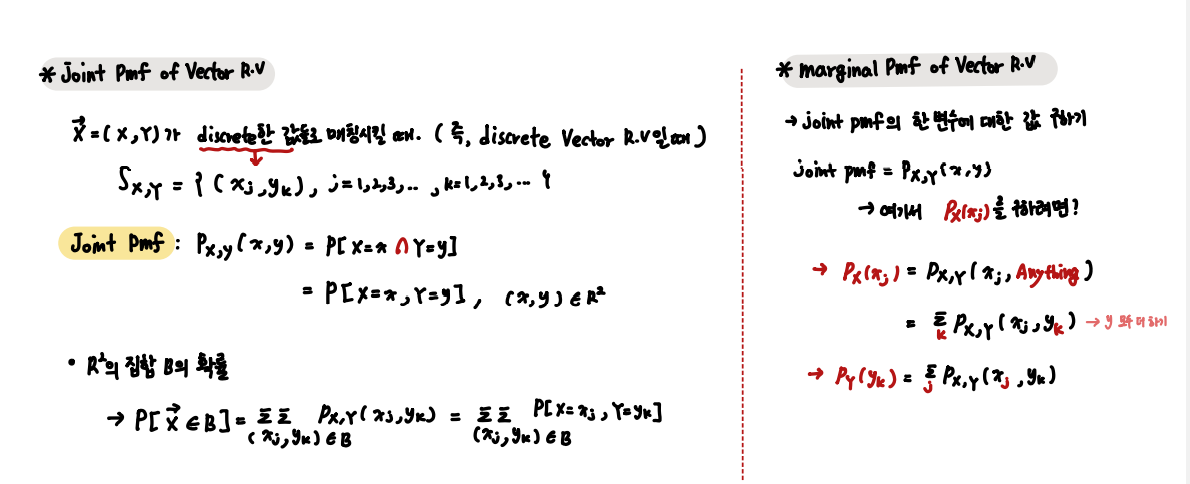 * Joint Pmf of Vector R.V
X⃗ = (X,Y)가 discrete한 값들로 매칭시킬 때. ( 즉, discrete Vector R.V일때 )
S_{X,Y} = { (x_j, y_k), j=1,2,3,.. , k=1,2,3,... }
Joint Pmf : P_{X,Y}(x,y) = P[X=x ∩ Y=y]
= P[X=x, Y=y], (x,y) ∈ R²
• R²의 집합 B의 확률
→ P[X⃗ ∈ B] = ΣΣ_{(x_j,y_k)∈B} P_{X,Y}(x_j,y_k) = ΣΣ_{(x_j,y_k)∈B} P[X=x_j, Y=y_k]
* marginal Pmf of Vector R.V
→ joint pmf의 한 변수에 대한 값 구하기
joint pmf = P_{X,Y}(x,y)
→ 여기서 P_X(x_j)를 구하려면?
→ P_X(x_j) = P_{X,Y}(x_j, Anything)
= Σ_k P_{X,Y}(x_j, y_k) → y 모두 더하기
→ P_Y(y_k) = Σ_j P_{X,Y}(x_j, y_k)